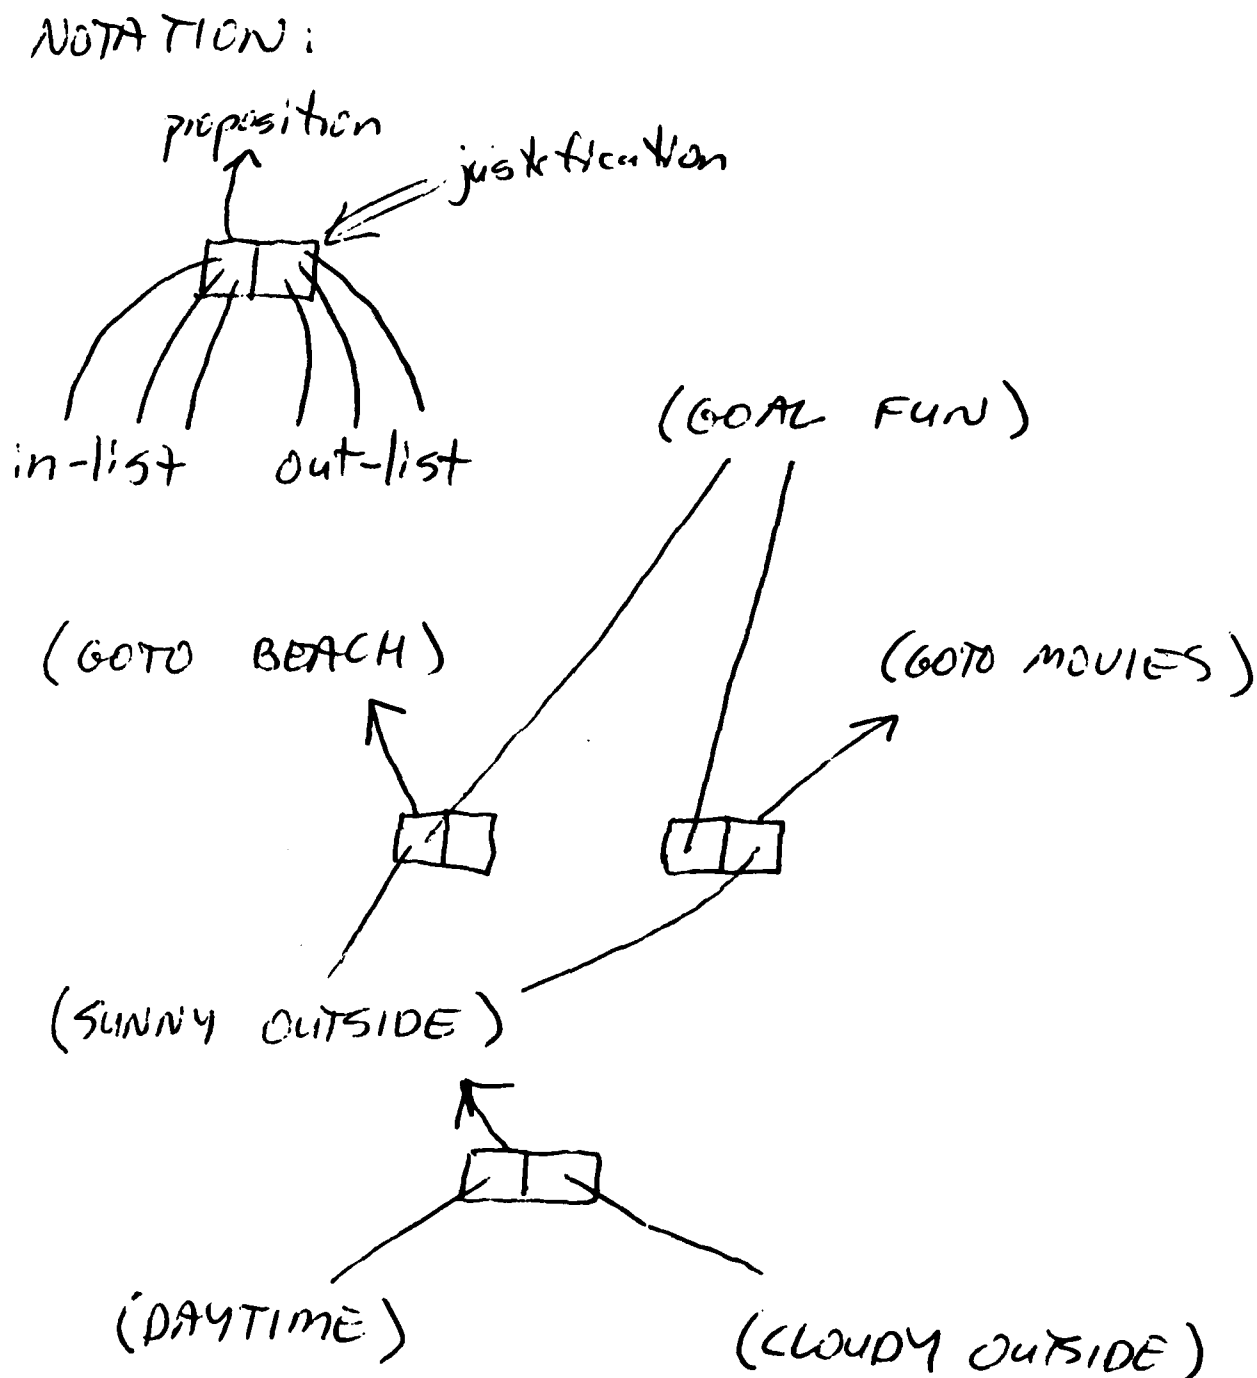 NOTATION:
proposition
justification
in-list out-list
(GOAL FUN)
(GOTO BEACH) (GOTO MOVIES)
(SUNNY OUTSIDE)
(DAYTIME) (CLOUDY OUTSIDE)